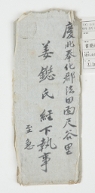 慶北奉化郡法田面尺谷里
姜鑓氏 經下執事
至急